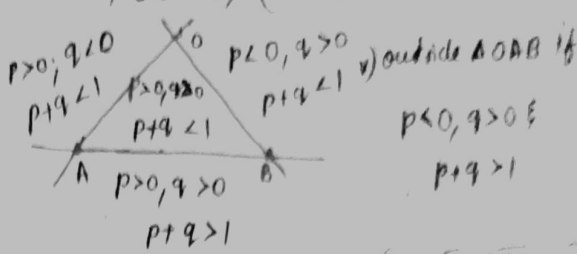 O
p>0; q<0
p+q<1
p<0, q>0
p+q<1
p>0, q>0
p+q<1
A
B
p>0, q>0
p+q>1
v) outside ΔOAB if
p<0, q>0 &
p+q>1